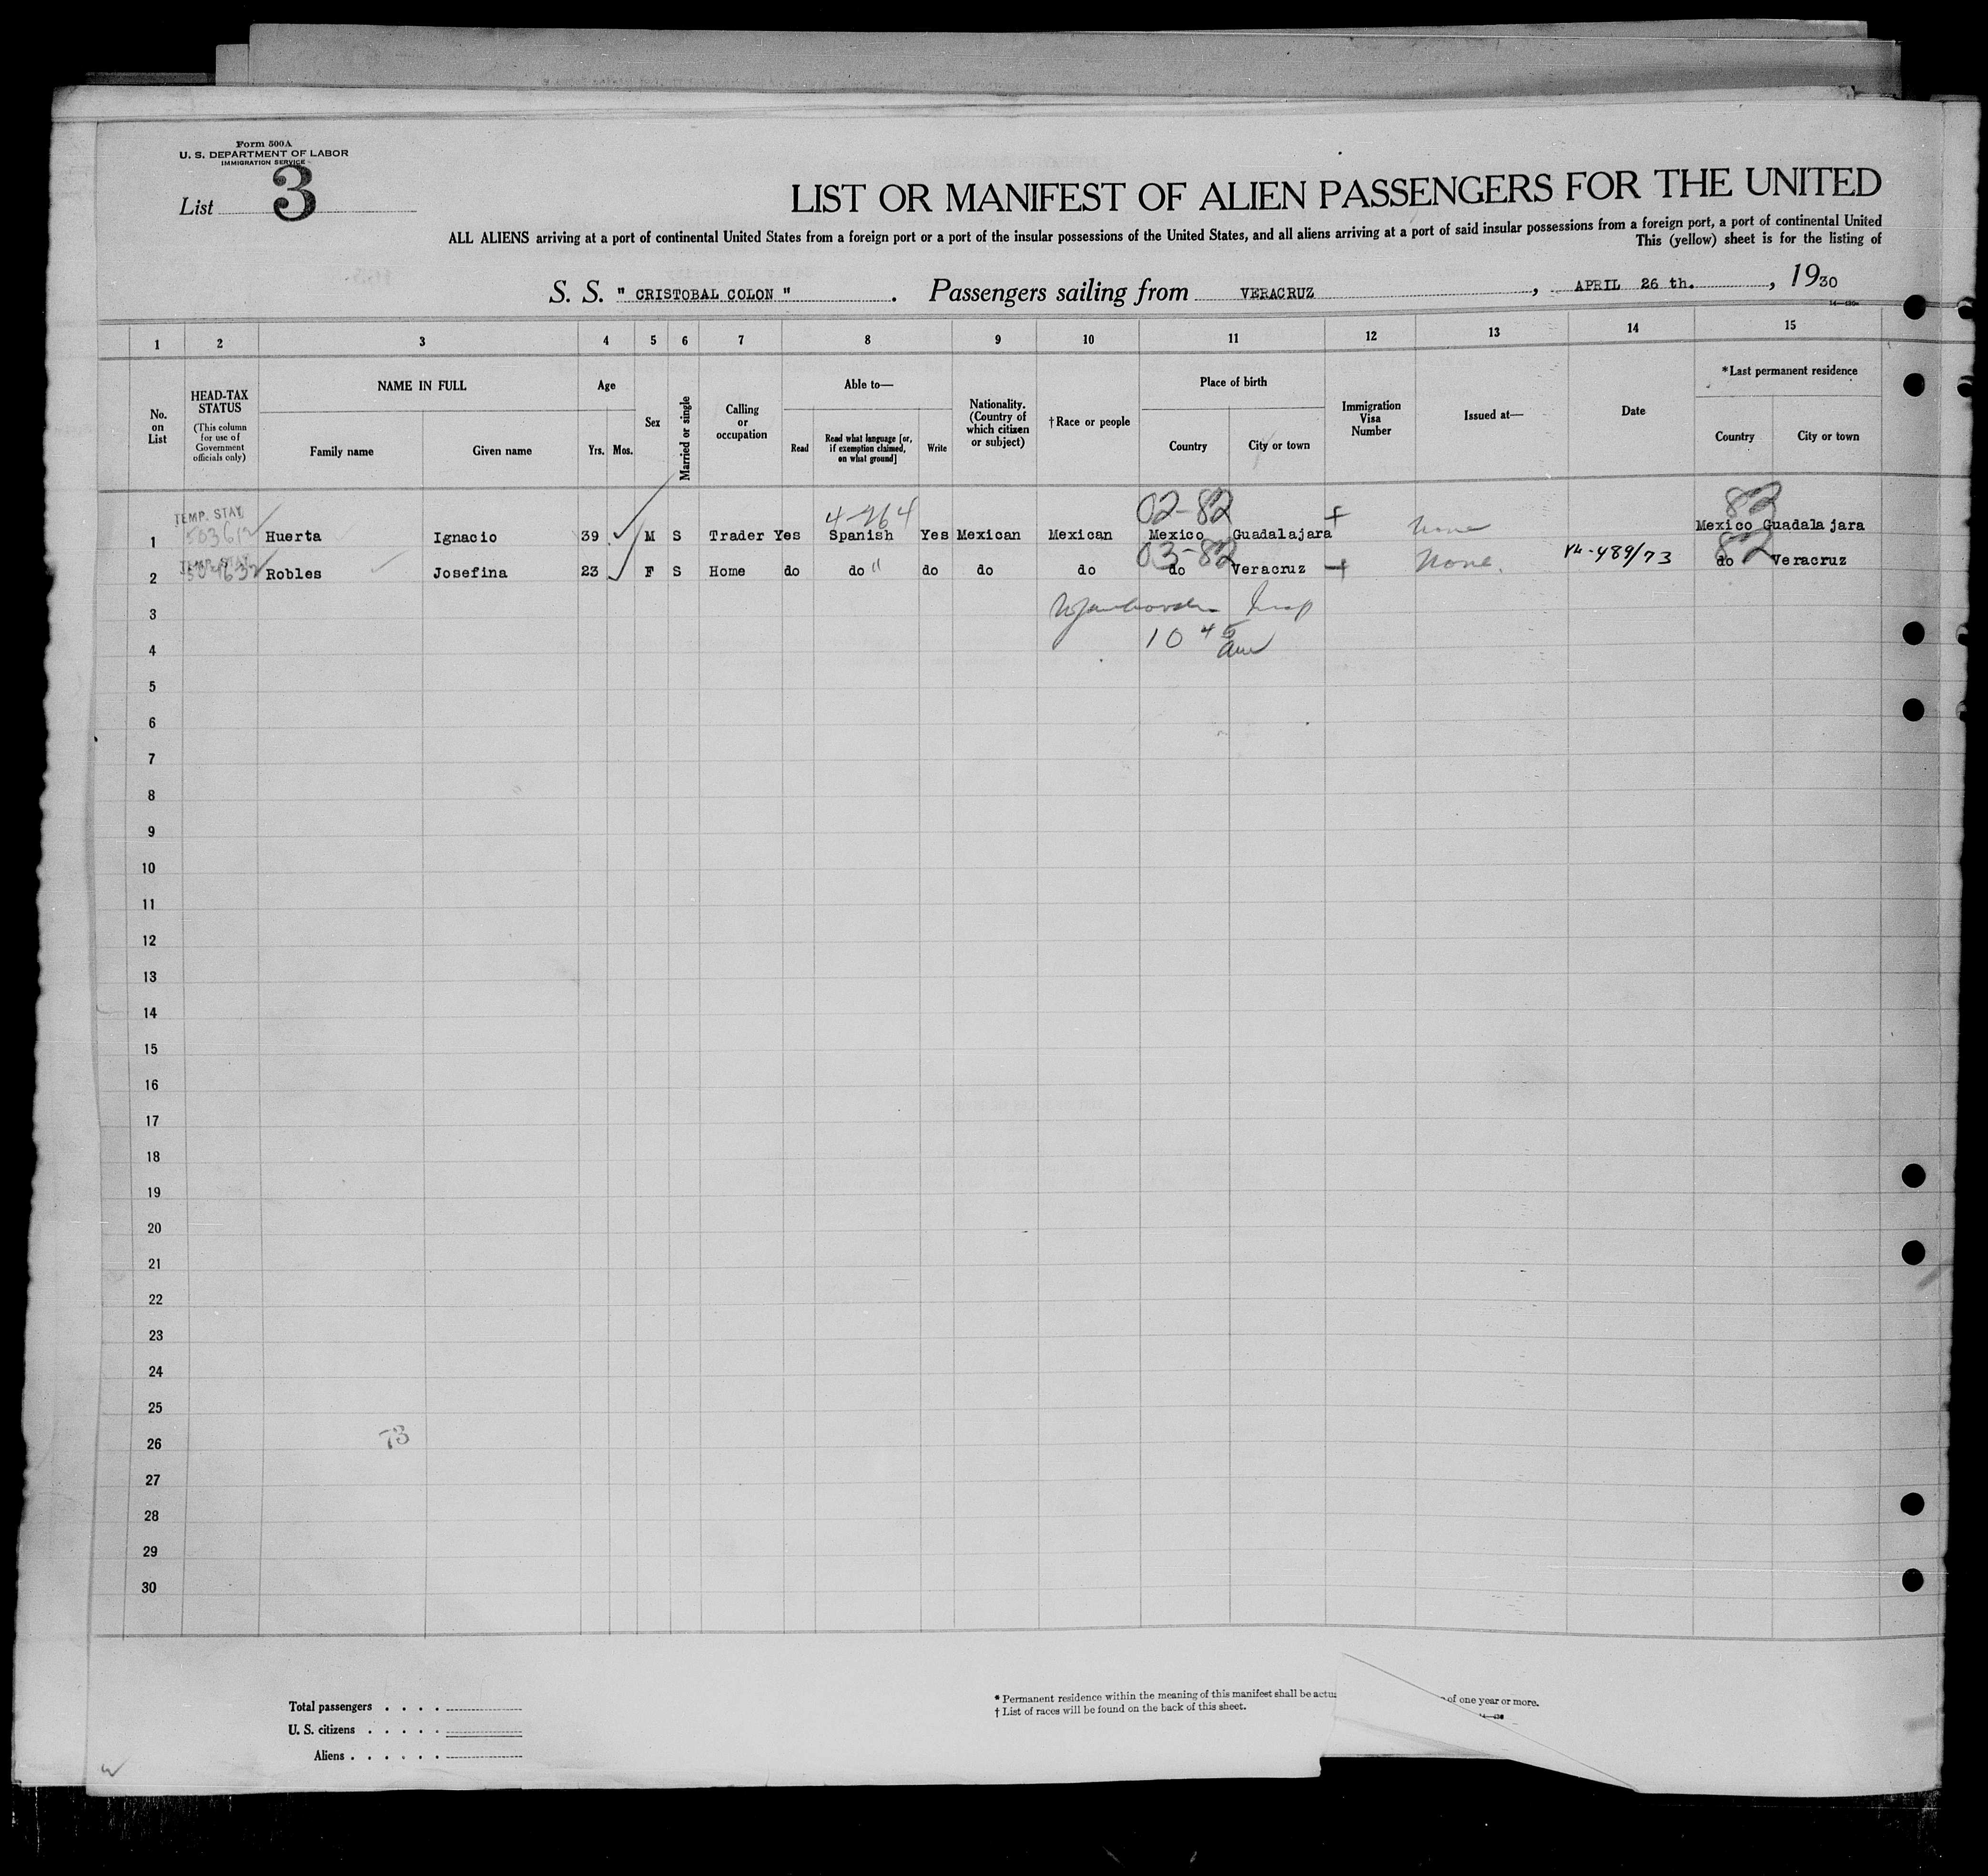 Form 500A
U. S. DEPARTMENT OF LABOR
IMMIGRATION SERVICE
List 3
LIST OR MANIFEST OF ALIEN PASSENGERS FOR THE UNITED
ALL ALIENS arriving at a port of continental United States from a foreign port or a port of the insular possessions of the United States, and all aliens arriving at a port of said insular possessions from a foreign port, a port of continental United
This (yellow) sheet is for the listing of
S. S. " CRISTOBAL COLON " . Passengers sailing from VERACRUZ , APRIL 26 th. , 1930
1 2 3 4 5 6 7 8 9 10 11 12 13 14 15
No. on List
HEAD-TAX STATUS
(This column for use of Government officials only)
NAME IN FULL
Family name Given name
Age
Yrs. Mos.
Sex
Married or single
Calling or occupation
Able to—
Read
Read what language [or, if exemption claimed, on what ground]
Write
Nationality. (Country of which citizen or subject)
†Race or people
Place of birth
Country City or town
Immigration Visa Number
Issued at—
Date
*Last permanent residence
Country City or town
TEMP. STAY 4-264 02-82 82
1 Huerta Ignacio 39 M S Trader Yes Spanish Yes Mexican Mexican Mexico Guadalajara none Mexico Guadalajara
TEMP. STAY 03-82 82
2 Robles Josefina 23 F S Home do do " do do do do Veracruz None. 489/73 do Veracruz
3
10 45
am
4
5
6
7
8
9
10
11
12
13
14
15
16
17
18
19
20
21
22
23
24
25
26 73
27
28
29
30
Total passengers . . . .
U. S. citizens . . . . .
Aliens . . . . . .
* Permanent residence within the meaning of this manifest shall be of one year or more.
† List of races will be found on the back of this sheet.